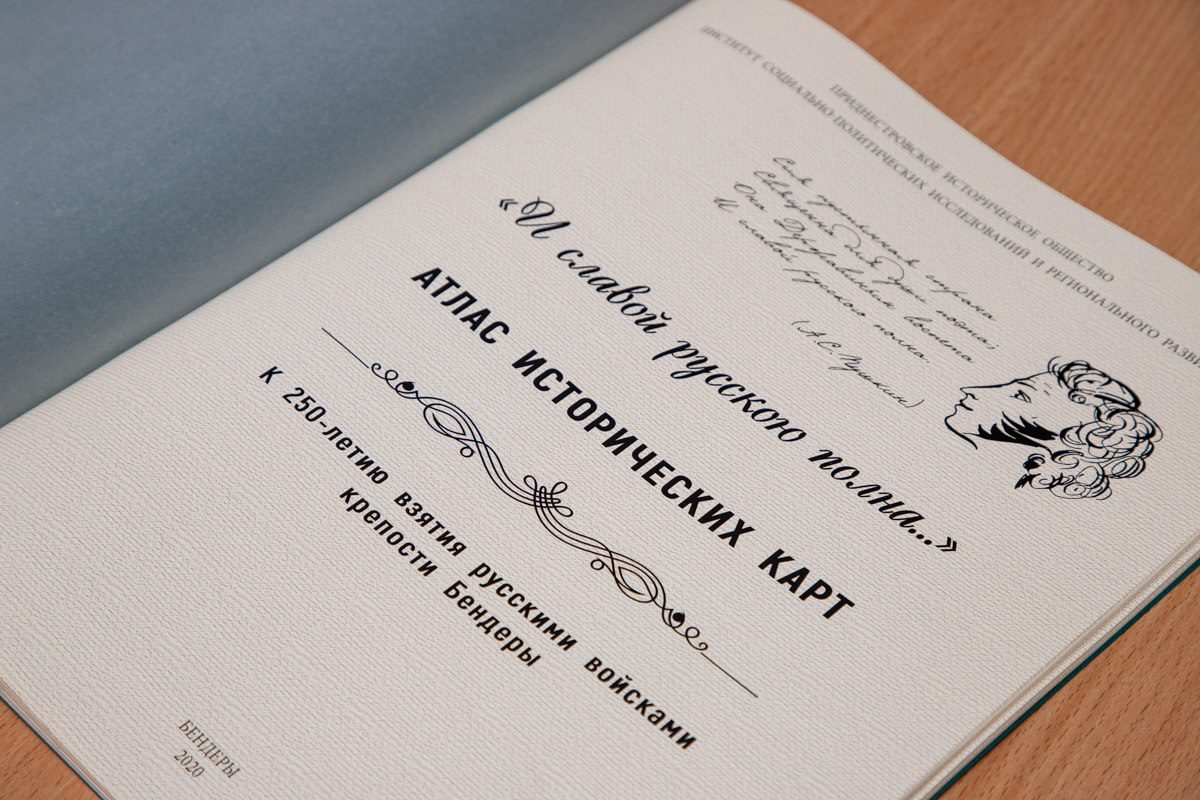 ПРИДНЕСТРОВСКОЕ ИСТОРИЧЕСКОЕ ОБЩЕСТВО
ИНСТИТУТ СОЦИАЛЬНО-ПОЛИТИЧЕСКИХ ИССЛЕДОВАНИЙ И РЕГИОНАЛЬНОГО
Сия пустынная страна
Священна для души поэта:
Она Державиным воспета
И славой русскою полна.
(А.С.Пушкин)
«И славой русскою полна...»
АТЛАС ИСТОРИЧЕСКИХ КАРТ
К 250-летию взятия русскими войсками
крепости Бендеры
БЕНДЕРЫ
2020